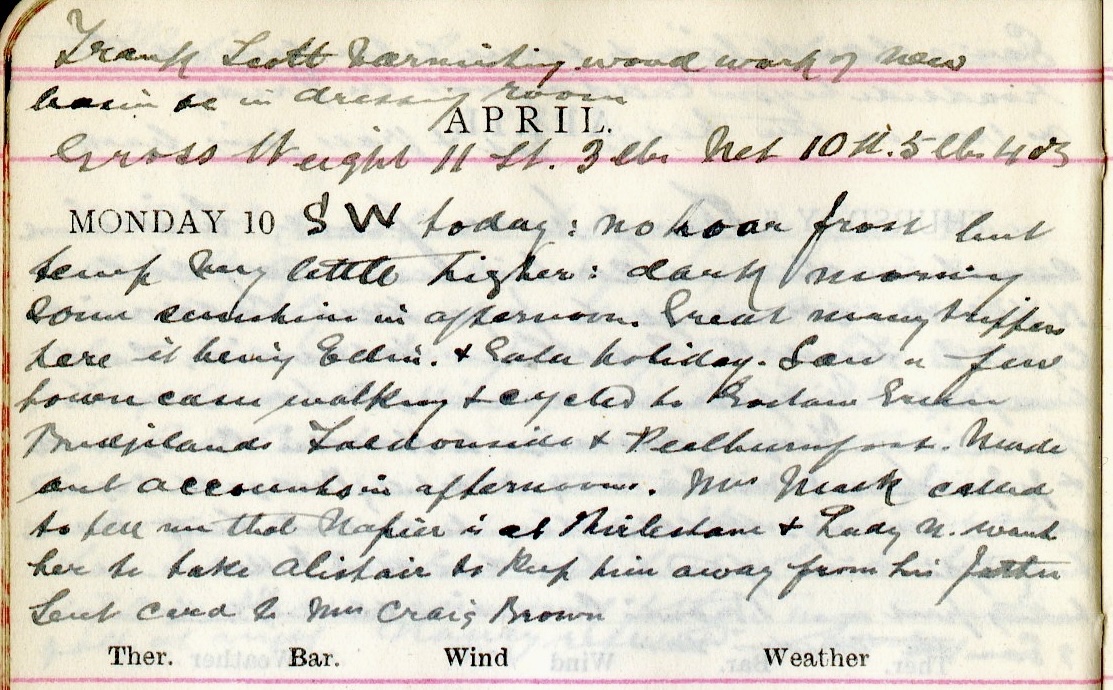 Frank Scott varnishing wood work of new
basin &c in dressing room
APRIL.
Gross Weight 11 St. 3 lbs Net 10 St. 5 lbs 4 oz
MONDAY 10 SW today: no hoar frost but
temp very little higher: dark morning
some sunshine in afternoon. Great many trippers
here it being Edin. & Gala holiday. Saw a few
town cases walking & cycled to Green
Bridgelands Faldonside & . Made
out accounts in afternoon. Mrs Mack called
to tell me that Napier is at Thirlestane & Lady N. wants
her to take Alistair to keep him away from his father
Sent card to Mrs Craig Brown
Ther. Bar. Wind Weather